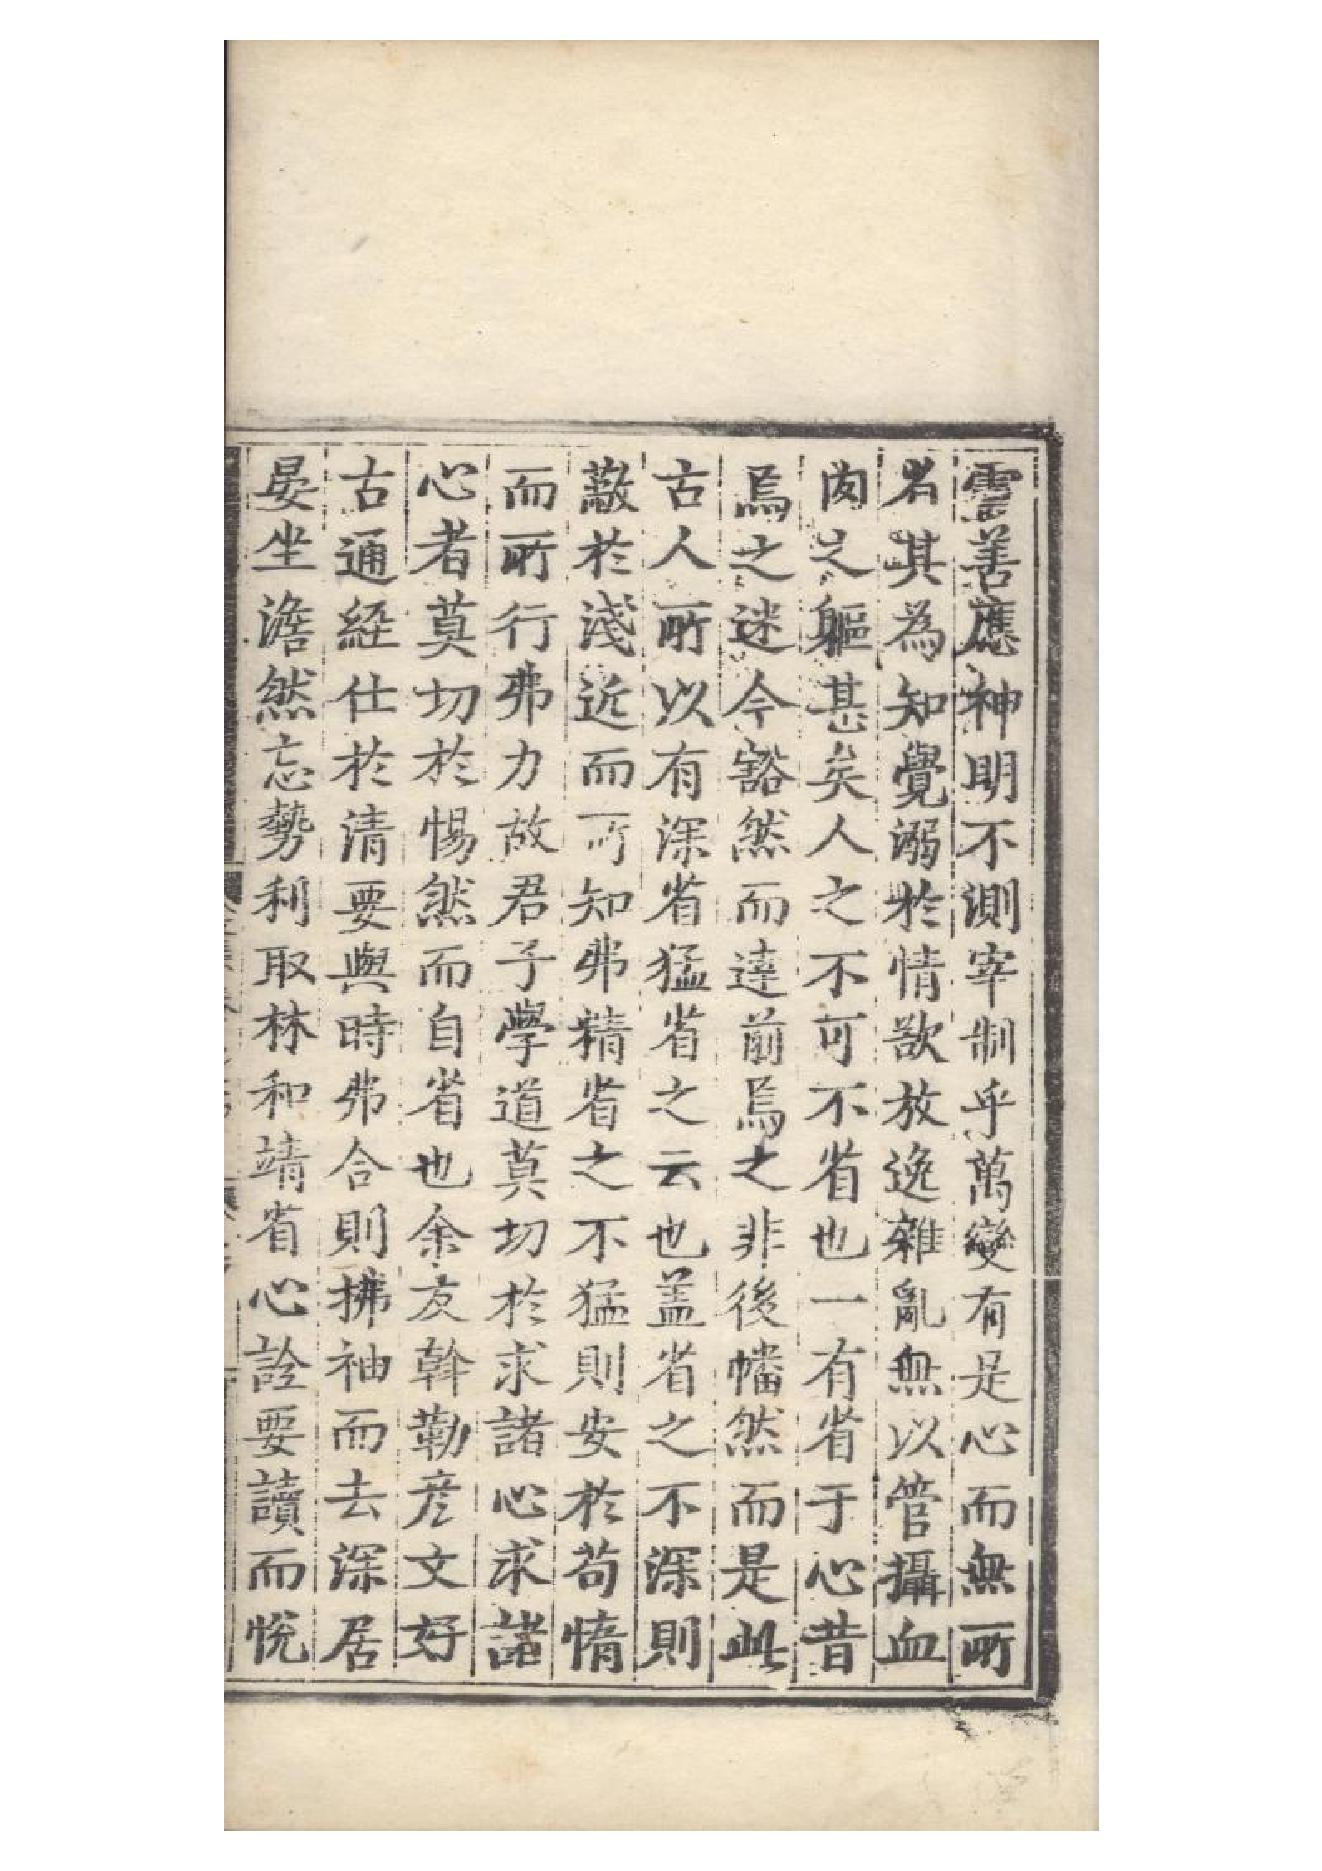 靈善應神明不測宰制乎萬變有是心而無所
者其為知覺溺於情欲放逸雜亂無以管攝血
肉之軀甚矣人之不可不省也一有省于心昔
焉之迷今豁然而達前焉之非後幡然而是此
古人所以有深省猛省之云也盖省之不深則
蔽於淺近而所知弗精省之不猛則安於苟惰
而所行弗力故君子學道莫切於求諸心求諸
心者莫切於惕然而自省也余友斡勒彦文好
古通經仕於清要與時弗合則拂袖而去深居
晏坐澹然忘勢利取林和靖省心詮要讀而悅